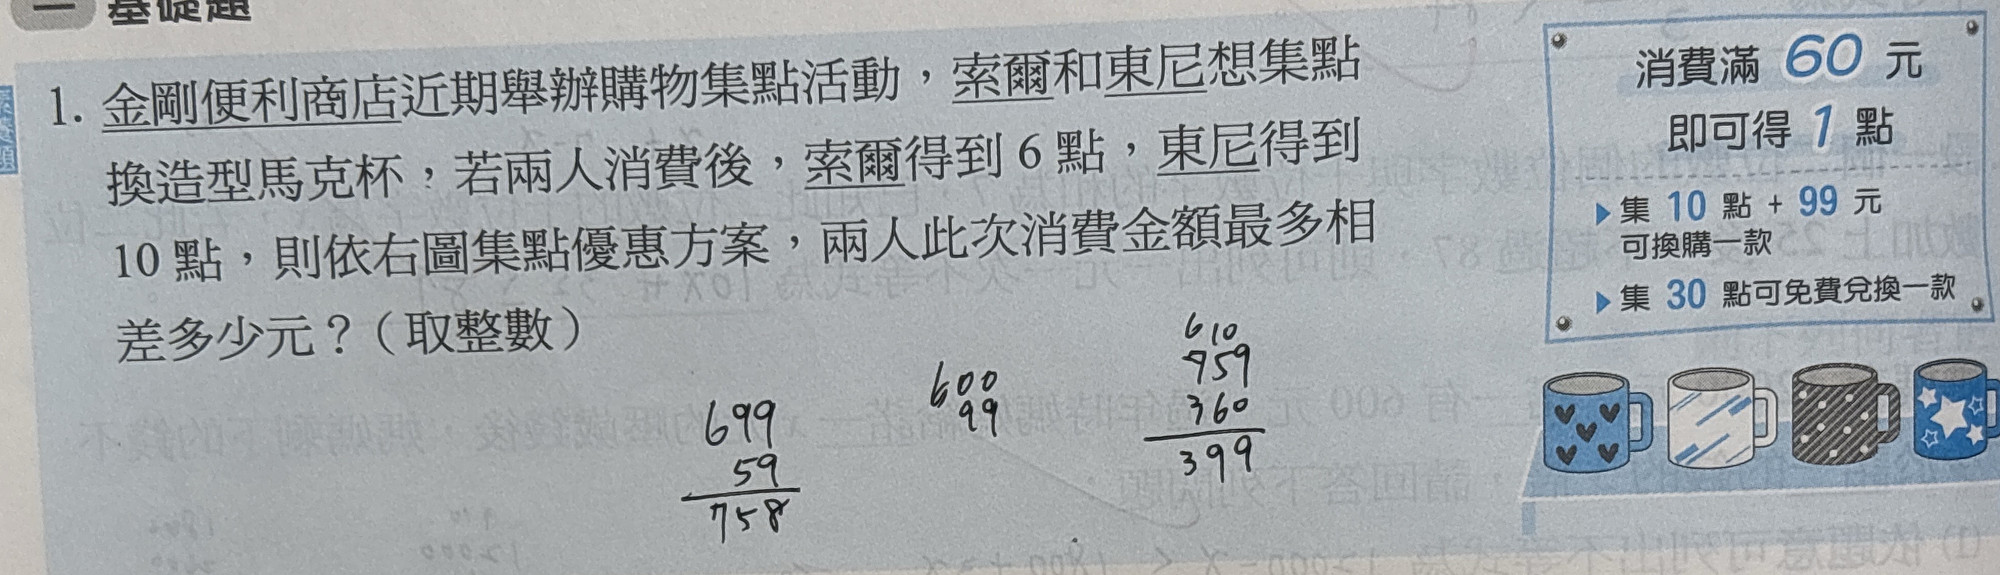 一 基礎題
1. 金剛便利商店近期舉辦購物集點活動，索爾和東尼想集點
換造型馬克杯，若兩人消費後，索爾得到 6 點，東尼得到
10 點，則依右圖集點優惠方案，兩人此次消費金額最多相
差多少元？（取整數）
消費滿 60 元
即可得 1 點
集 10 點 + 99 元
可換購一款
集 30 點可免費兌換一款
699
59
758
600
99
610
759
360
399